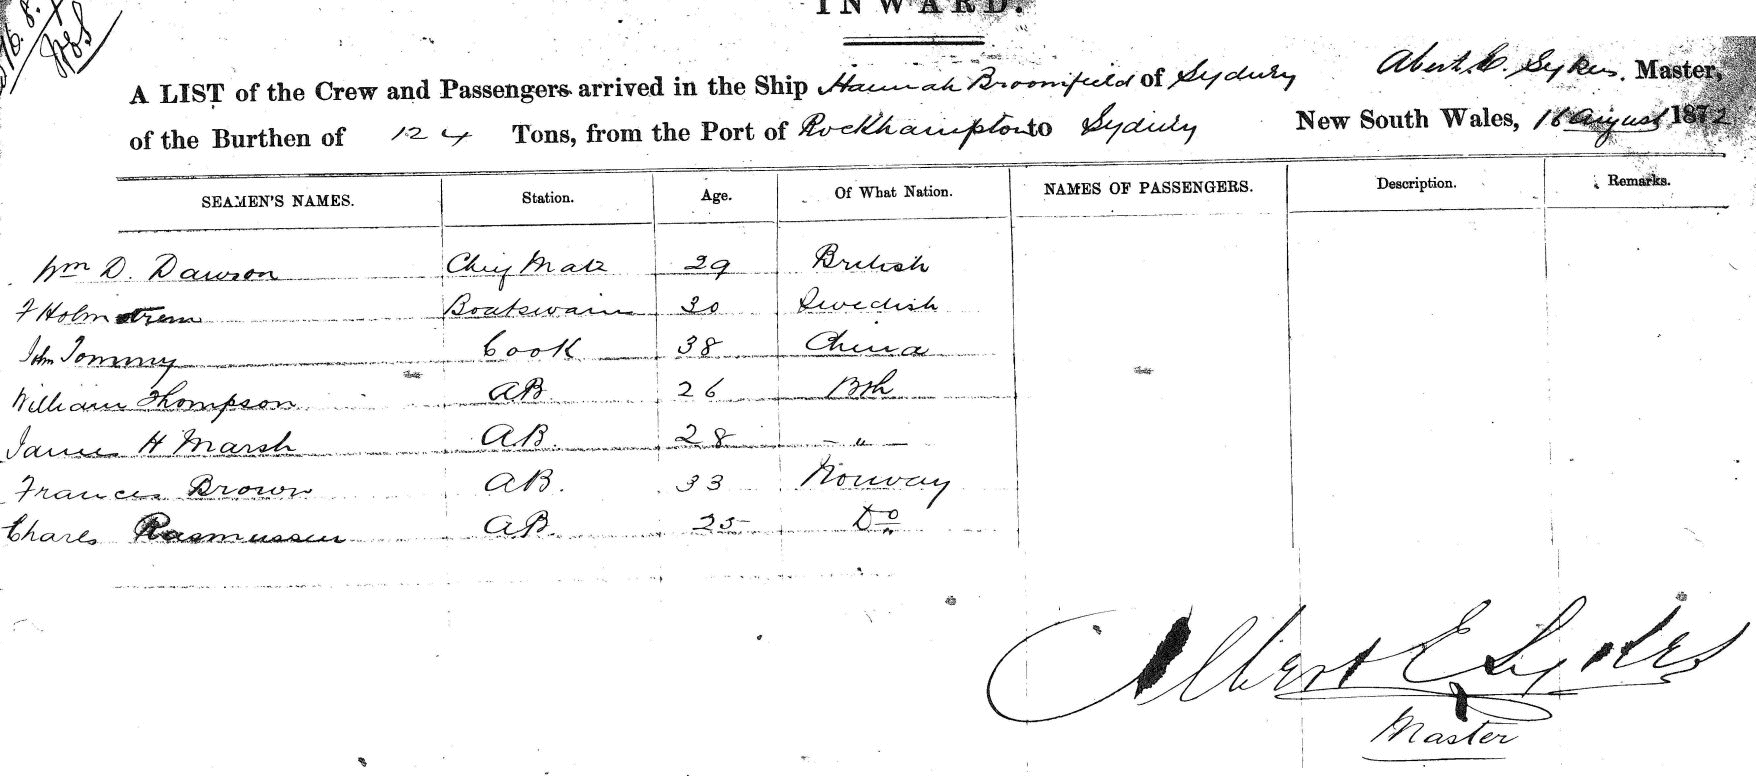 INWARD.
A LIST of the Crew and Passengers arrived in the Ship Hannah Broomfield of Sydney Albert E. Sykes. Master,
of the Burthen of 124 Tons, from the Port of Rockhampton to Sydney New South Wales, 16 August 1872
SEAMEN'S NAMES. Station. Age. Of What Nation. NAMES OF PASSENGERS. Description. Remarks.
Wm D. Dawson Chief Mate 29 British
F Holmstrem Boatswain 30 Swedish
Jhn Tommy Cook 38 China
William Thompson AB 26 Bsh
James H Marsh A.B. 28 – " –
Frances Brown AB. 33 Norway
Charles Rasmussen AB. 25 Do
Albert E Sykes
Master